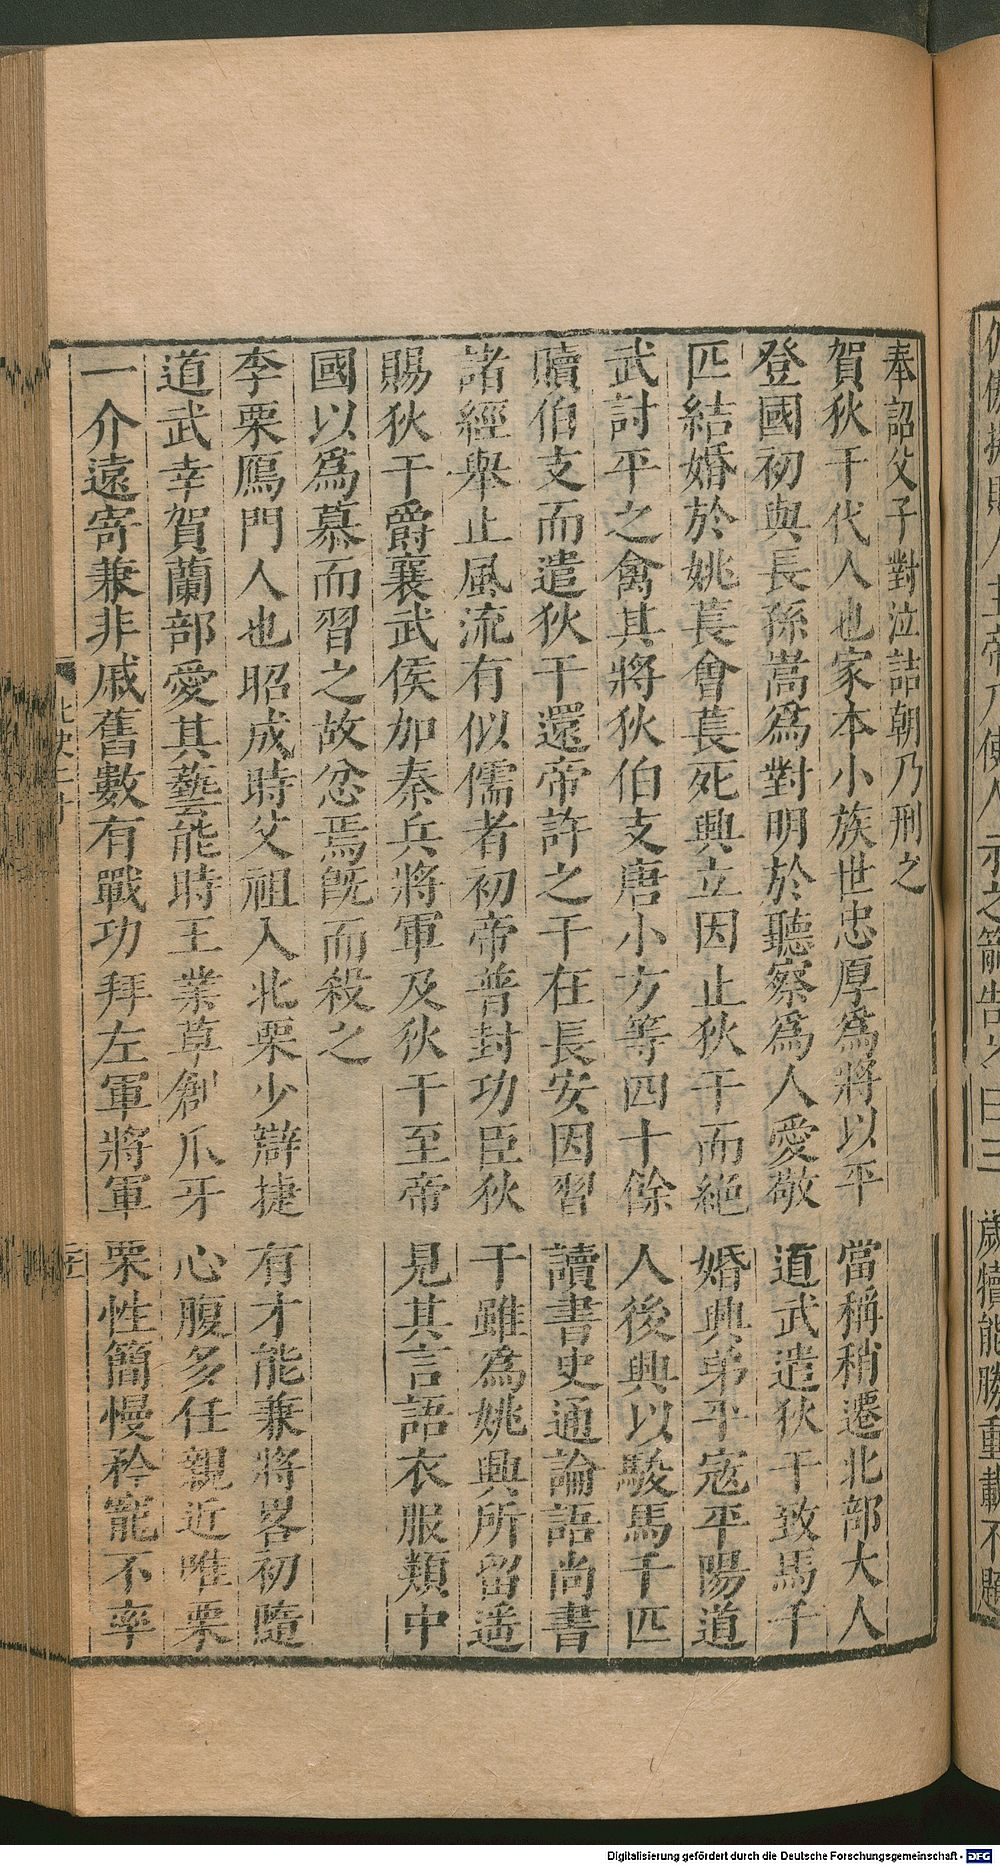 奉詔父子對泣詰朝乃刑之
賀狄干代人也家本小族世忠厚爲將以平當稱稍遷北部大人
登國初與長孫嵩爲對明於聽察爲人愛敬道武遣狄干致馬千
匹結婚於姚萇會萇死興立因止狄干而絕婚興弟平寇平陽道
武討平之禽其將狄伯支唐小方等四十餘人後興以駿馬千匹
贖伯支而遣狄干還帝許之干在長安因習讀書史通論語尚書
諸經舉止風流有似儒者初帝普封功臣狄干雖爲姚興所留遥
賜狄干爵襄武侯加秦兵將軍及狄干至帝見其言語衣服類中
國以爲慕而習之故忿焉旣而殺之
李栗鴈門人也昭成時父祖入北栗少辯捷有才能兼將畧初隨
道武幸賀蘭部愛其藝能時王業草創爪牙心腹多任親近唯栗
一介遠寄兼非戚舊數有戰功拜左軍將軍栗性簡慢矜寵不率
Digitalisierung gefördert durch die Deutsche Forschungsgemeinschaft - DFG